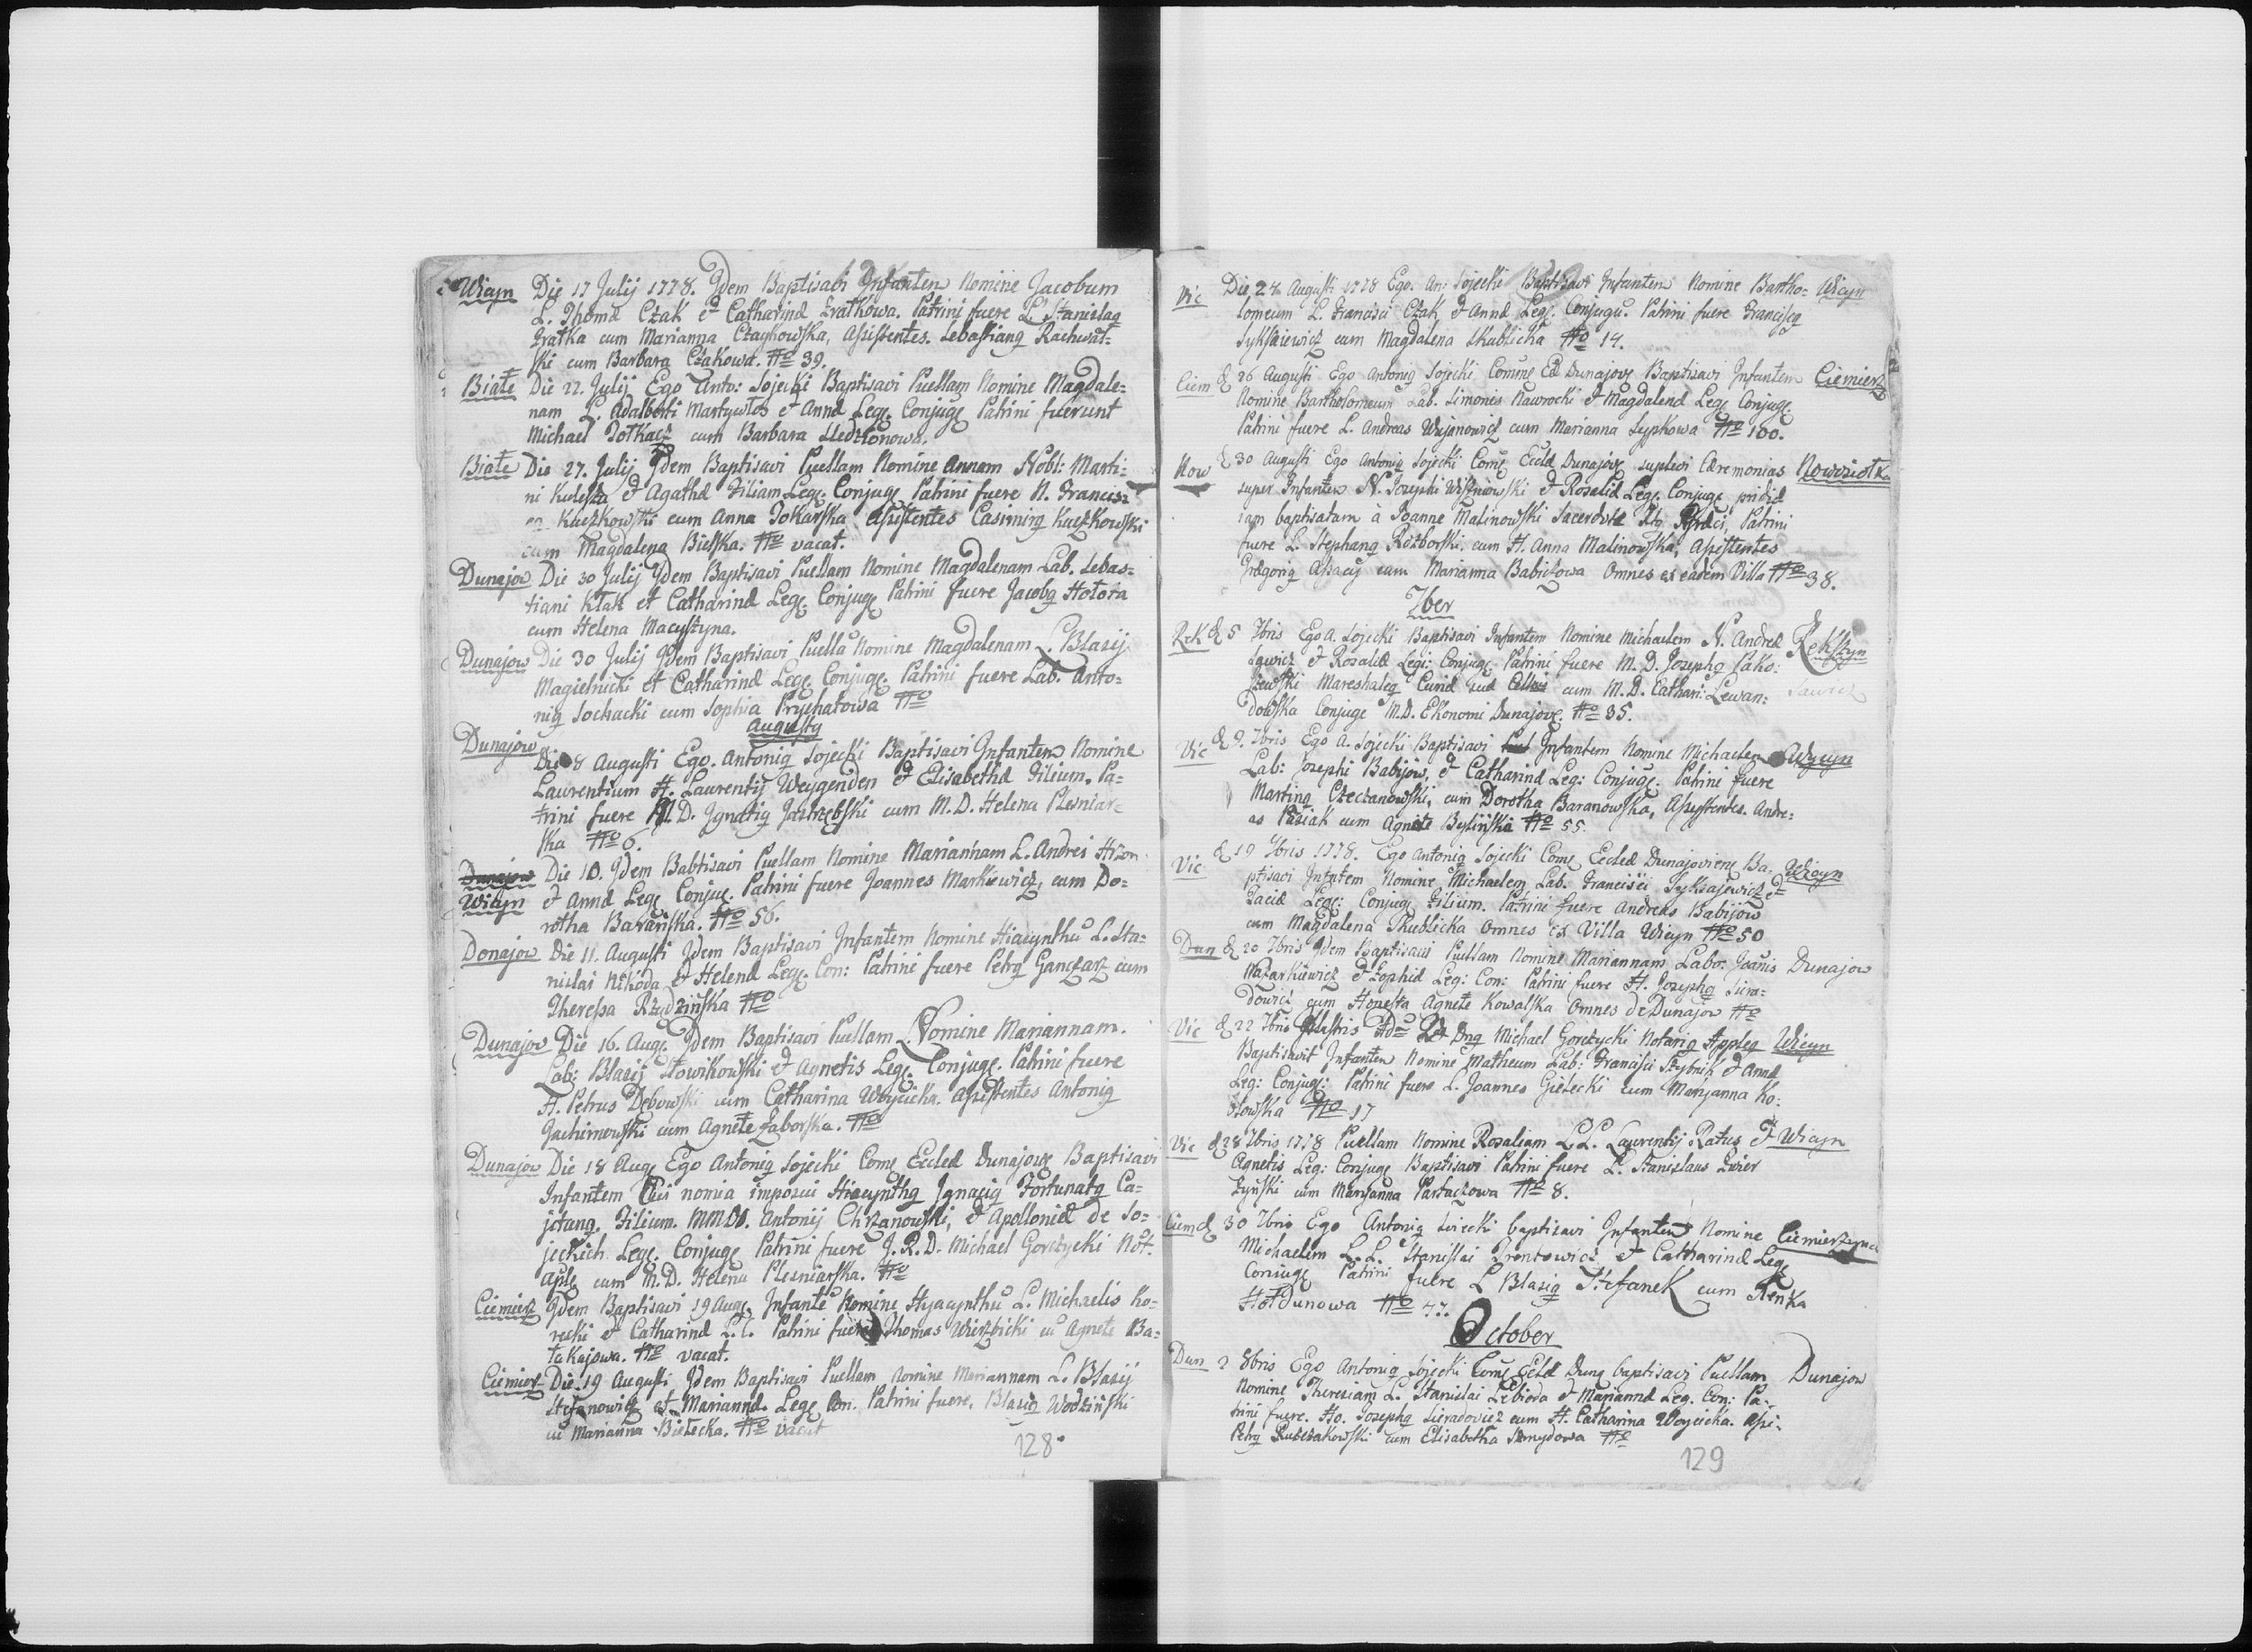 Wicyn Die 17 Julij 1778. Idem Baptisavi Infantem Nomine Jacobum
L. Thomæ Czak et Catharinæ Gratkowa. Patrini fuere L. Stanislaq
Gratka cum Marianna Czaykowska, Assistentes. Sebastianq Rachwał-
ski cum Barbara Czakowa. Nro 39.
Białe Die 22. Julij Ego Anto: Sojecki Baptisavi Puellam Nomine Magdale-
nam L. Adalberti Martywłos et Annæ Leg. Conjug. Patrini fuerunt
Michael Tołkacz cum Barbara
Białe Die 27. Julij Idem Baptisavi Puellam Nomine Annam Nobl: Marti-
ni Kuleska et Agathæ Filiam Leg. Conjug. Patrini fuere N. Francisc
Kuczkowski cum Anna Tokarska Assistentes Casimirq Kuczkowski
cum Magdalena Bielska. Nro vacat.
Dunajow Die 30 Julij Idem Baptisavi Puellam Nomine Magdalenam Lab. Sebas-
tiani Kłak et Catharinæ Leg. Conjug. Patrini fuere Jacobq Hołota
cum Helena Macyszyna.
Dunajow Die 30 Julij Idem Baptisavi Puella Nomine Magdalenam L. Blasij
Magielnicki et Catharinæ Leg. Conjug. Patrini fuere Lab. Anto-
niq Sochacki cum Sophia Prychatowa Nro
Augusty
Dunajow Die 8 Augusti Ego. Antoniq Sojecki Baptisavi Infantem Nomine
Laurentium H. Laurentij Weygenden et Elisabethæ Filium. Pa-
trini fuere M.D. Ignatiq Jastrzębski cum M.D. Helena Plesniar-
ska Nro 6.
Dunajow Die 10. Idem Babtisavi Puellam Nomine Mariannam L. Andrei
Wicyn et Annæ Leg. Conjug. Patrini fuere Joannes Markiewicz, cum Do-
rotha Baranska. Nro 56.
Donajow Die 11. Augusti Idem Baptisavi Infantem Nomine Hiacynthu L. Sta-
nislai Nikoda et Helenæ Leg. Con: Patrini fuere Petrq Ganczarz cum
Theressa Rzydzińska Nro
Dunajow Die 16. Aug. Idem Baptisavi Puellam Nomine Mariannam.
Lab: Blasij Słowikowski et Agnetis Leg. Conjuge. Patrini fuere
H. Petrus Dębowski cum Catharina Woycicka. Assistentes Antoniq
Jachimowski cum Agnete Zaborska. Nro
Dunajow Die 18 Aug Ego Antoniq Sojecki Com Eccleæ Dunajow Baptisavi
Infantem Cui nomia imposui Hiacynthq Ignaciq Fortunatq Ca-
jetanq. Filium. MMDD. Antonij Chrzanowski, et Apolloniæ de So-
jeckich Leg. Conjug. Patrini fuere J.R.D. Michael Gorczycki Not.
Aplq cum M.D. Helena Plesniarska. Nro
Ciemierz Idem Baptisavi 19 Aug. Infante Nomine Hyacynthu L. Michaelis Ko-
recki et Catharinæ L.C. Patrini fuere Thomas Wierzbicki cu Agnete Ba-
łakajowa. Nro vacat.
Ciemierz Die 19 Augusti Idem Baptisavi Puellam Nomine Mariannam L. Blasij
Stefanowicz et Mariannæ Leg. Con. Patrini fuere, Blasiq Wodziński
cu Marianna Bielecka. Nro vacat
128
Vic Die 24 Augusti 1778 Ego. An: Sojecki Baptisavi Infantem Nomine Bartho- Wicyn
lomeum L. Francisci Czak et Annæ Leg. Conjugu. Patrini fuere Franciscq
Syksaiewicz cum Magdalena Skublicka Nro 14.
Ciem d 26 Augusti Ego Antoniq Sojecki Comme Ecl Dunajov Baptisavi Infantem Ciemierz
Nomine Bartholomeum Lab. Simonis Nawrocki et Magdalenæ Leg Conjug.
Patrini fuere L. Andreas Wujanowicz cum Marianna Sypkowa Nro 100.
Now d 30 Augusti Ego Antoniq Sojecki Com Eccle Dunajov suplevi Cæremonias Nowosiołka
super Infantem N. Josephi Wiszniowski et Rosaliæ Leg. Conjug pridie
iam baptisatam à Joanne Malinowski Sacerdote Rtq Græci, Patrini
fuere L. Stephanq Rozborski, cum H. Anna Malinowska, Assistentes
Gregoriq Assacy cum Marianna Babiczowa Omnes ex eadem Villa Nro 38.
7ber
Rek d 5 7bris Ego A. Sojecki Baptisavi Infantem Nomine Michaelem N. Andreæ Rekszyn
Sawicz et Rosaliæ Legi: Conjug. Patrini fuere M.D. Josephq Sako- Sawicz
szewski Mareshalcq Curiæ suæ cum M.D. Cathari: Lewan-
dowska Conjuge M.D. Ekonomi Dunajov. Nro 35.
Vic d 9. 7bris Ego A. Sojecki Baptisavi Infantem Nomine Michaelem Wycyn
Lab: Josephi Babijow, et Catharinæ Leg: Conjug: Patrini fuere
Martinq Czeczanowski, cum Dorotha Baranowska, Assystentes. Andre-
as Pasiak cum Agnete Bylińska Nro 55.
Vic d 19 7bris 1778. Ego Antoniq Sojecki Com Eccleæ Dunajoviens Ba- Wicyn
ptisavi Infantem Nomine Michaelem Lab. Francisci Syksajewicz et
Taciæ Leg: Conjug Filium. Patrini fuere Andreas Babijow
cum Magdalena Skublicka Omnes ex Villa Wicyn Nro 50
Dun d 20 7bris Idem Baptisavi Puellam Nomine Mariannam Labo: Joanis Dunajow
Nazarkiewicz et Zophiæ Leg: Con: Patrini fuere H. Josephq Siera-
dowicz cum Honesta Agnete Kowalska Omnes de Dunajow Nro
Vic d 22 7bris Illustris Dnq Michael Gorczycki Notariq Applcq Wicyn
Baptisavit Infantem Nomine Matheum Lab: Francisci Szybnik et Annæ
Leg: Conjug: Patrini fuere L. Joannes Gielecki cum Maryanna Ko-
złowska Nro 17
Vic d 28 7bris 1778 Puellam Nomine Rosaliam L.L. Laurentij Ratus et Wicyn
Agnetis Leg: Conjuge Baptisavi Patrini fuere L. Stanislaus Zwier
żyński cum Maryanna Partaczowa Nro 8.
Ciem d 30 7bris Ego Antoniq Soiecki baptisavi Infantem Nomine
Michaelem L.L. Stanislai Prontowicz et Catharinæ Leg
Coniuge Patrini fuere L Blasiq Stefanek cum Renka
Hołdunowa Nro 47.
October
Dun 2 8bris Ego Antoniq Sojecki Com Eclæ Dunq baptisavi Puellam Dunajow
Nomine Theresiam L. Stanislai Lebioda et Mariannæ Leg. Con: Pa-
trini fuere. Ho. Josephq Sieradowicz cum H. Catharina Woycicka. Assi-
Petrq Ruszczakowski cum Elisabetha Szmydowa Nro
129